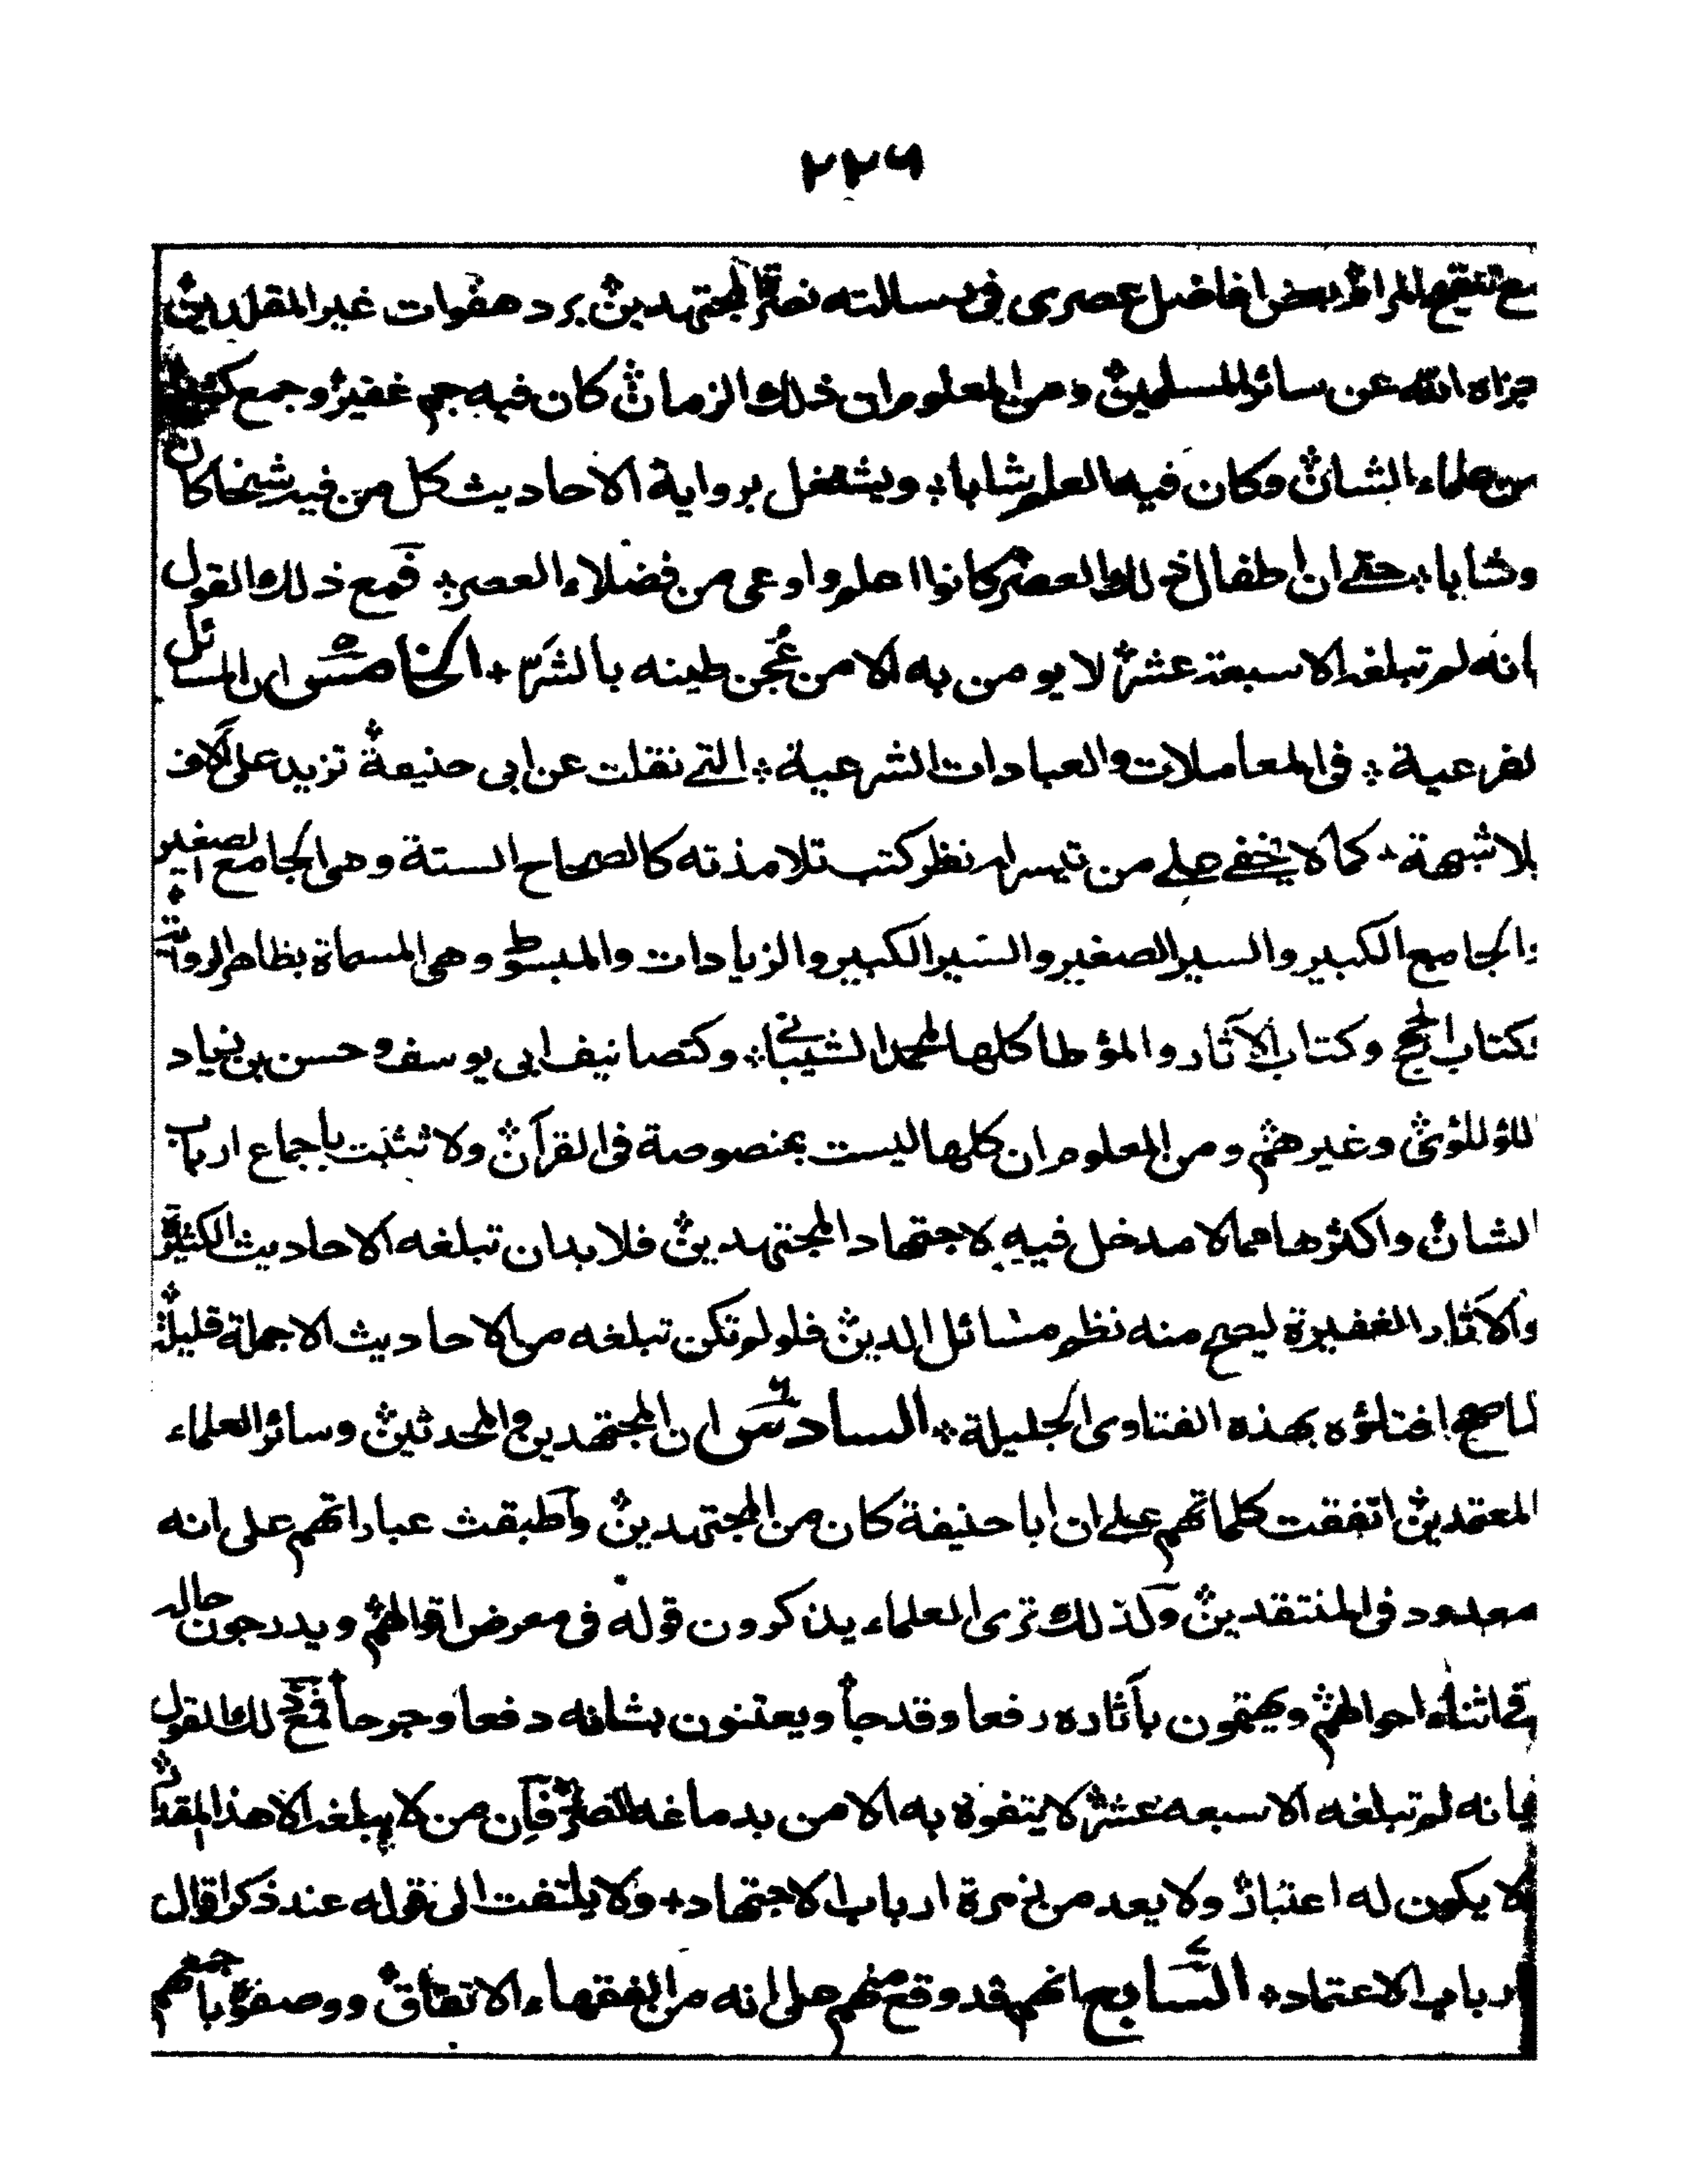 ۲۲۶
مع تنقيح المرام بعض افاضل عصرى فى رسالته نصرة المجتهدين برد هفوات غير المقلدين
جزاه الله عن سائر المسلمين ومن المعلوم ان ذلك الزمان كان فيه جم غفير وجمع كثير
من علماء الشان وكان فيه العلم شابا ويشتغل برواية الاحاديث كل من فيه شيخا كان
وشابا حتى ان اطفال ذلك العصر كانوا اعلم واوعى من فضلاء العصر فمع ذلك القول
بانه لم تبلغه الا سبعة عشر لا يومن به الا من عُجن طينه بالشر الخامس ان المسائل
لفرعية فى المعاملات والعبادات الشرعية التى نقلت عن ابى حنيفة تزيد على آلاف
بلا شبهة كما لا يخفى على من تيسر له نظر كتب تلامذته كالصحاح الستة وهى الجامع الصغير
والجامع الكبير والسير الصغير والسير الكبير والزيادات والمبسوط وهى المسماة بظاهر الرواية
وكتاب الحجج وكتاب الآثار والمؤطا كلها لمحمد الشيبانى وكتصانيف ابى يوسف وحسن بن زياد
للؤلؤى وغيرهم ومن المعلوم ان كلها ليست بمنصوصة فى القرآن ولا ثبتت باجماع ارباب
الشان واكثرها مما لا مدخل فيه لاجتهاد المجتهدين فلا بد ان تبلغه الاحاديث الكثيرة
والآثار الغفيرة ليصح منه نظم مسائل الدين فلو لم تكن تبلغه من الاحاديث الا جملة قليلة
لما صح افتاؤه بهذه الفتاوى الجليلة السادس ان المجتهدين والمحدثين وسائر العلماء
المعتمدين اتفقت كلماتهم على ان ابا حنيفة كان من المجتهدين وأطبقت عباراتهم على انه
معدود فى المنتقدين ولذلك ترى العلماء يذكرون قوله فى معرض اقوالهم ويدرجون حاله
فى اثناء احوالهم ويهتمون بآثاره رفعا وقدحاً ويعتنون بشانه دفعا وجرحاً فمع ذلك القول
بانه لم تبلغه الا سبعه عشر لا يتفوه به الا من بدماغه الضرر فإن من لا يبلغه الا هذا المقدار
لا يكون له اعتبار ولا يعد من زمرة ارباب الاجتهاد ولا يلتفت الى قوله عند ذكر اقوال
ارباب الاعتماد السَّابع انهم قد وقع منهم على انه من الفقهاء الاتفاق ووصفوه باجمعهم